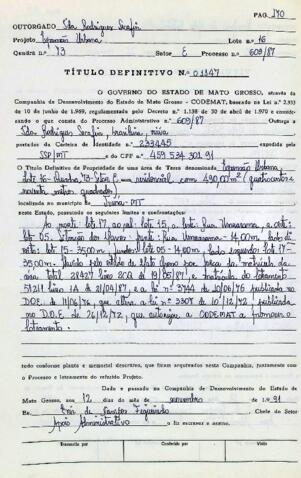 PAG. 170
OUTORGADO Ida Rodrigues Serafin
Projeto Expansão Urbana Lote n.o 16
Quadra n.o 73 Setor E Processo n.o 609/87
TÍTULO DEFINITIVO N.o 01347
O GOVERNO DO ESTADO DE MATO GROSSO, através da
Companhia de Desenvolvimento do Estado de Mato Grosso - CODEMAT, baseado na Lei n.o 2.933
de 10 de junho de 1.969, regulamentada pelo Decreto n.o 1.138 de 30 de abril de 1.970 e considerando
o que consta do Processo Administrativo n.o 609/87 Outorga a
Ida Rodrigues Serafin, brasileira,
portador da Carteira de Identidade n.o 233445 expedida pelo
SSP/MT do CPF n.o 459 534 301 91
O Título Definitivo de Propriedade de uma área de Terra denominada Expansão Urbana,
lote 16 Quadra 73 Setor E, residencial, com 490,00m² (quatrocentos e
noventa metros quadrados)
localizada no município de Juína - MT
neste Estado, passando os seguintes limites e confrontações:
Ao norte: lote 17, ao sul: lote 15, a lote: Rua Umuarama, e
lote 05. frente: Rua Umuarama - 14,00m, lado direito:
lote 15 - 35,00m, fundo: lote 05 - 14,00m lado esquerdo: lote 17 -
35,00m. da matrícula da
área total 28427 livro 2CQ de 19/05/87, e matrícula do loteamento
51211 livro 1A de 21/04/87, e a lei nº 3744 de 10/06/76 publicada no
D.O.E. de 11/06/76, que altera a lei 3307 de 10/12/72, publicada
no D.O.E de 26/12/72, que autoriza a CODEMAT a promover o
loteamento.
tudo conforme planta e memorial descritivo, que ficam arquivados nesta Companhia, juntamente com
o Processo e loteamento do referido Projeto.
Dado e passado na Companhia de Desenvolvimento do Estado de
Mato Grosso, aos 12 dias do mês de novembro de 1.991
Eu Chefe do Setor
Apoio Administrativo o fiz escrever e assino.
Transcrito por Conferido por Visto